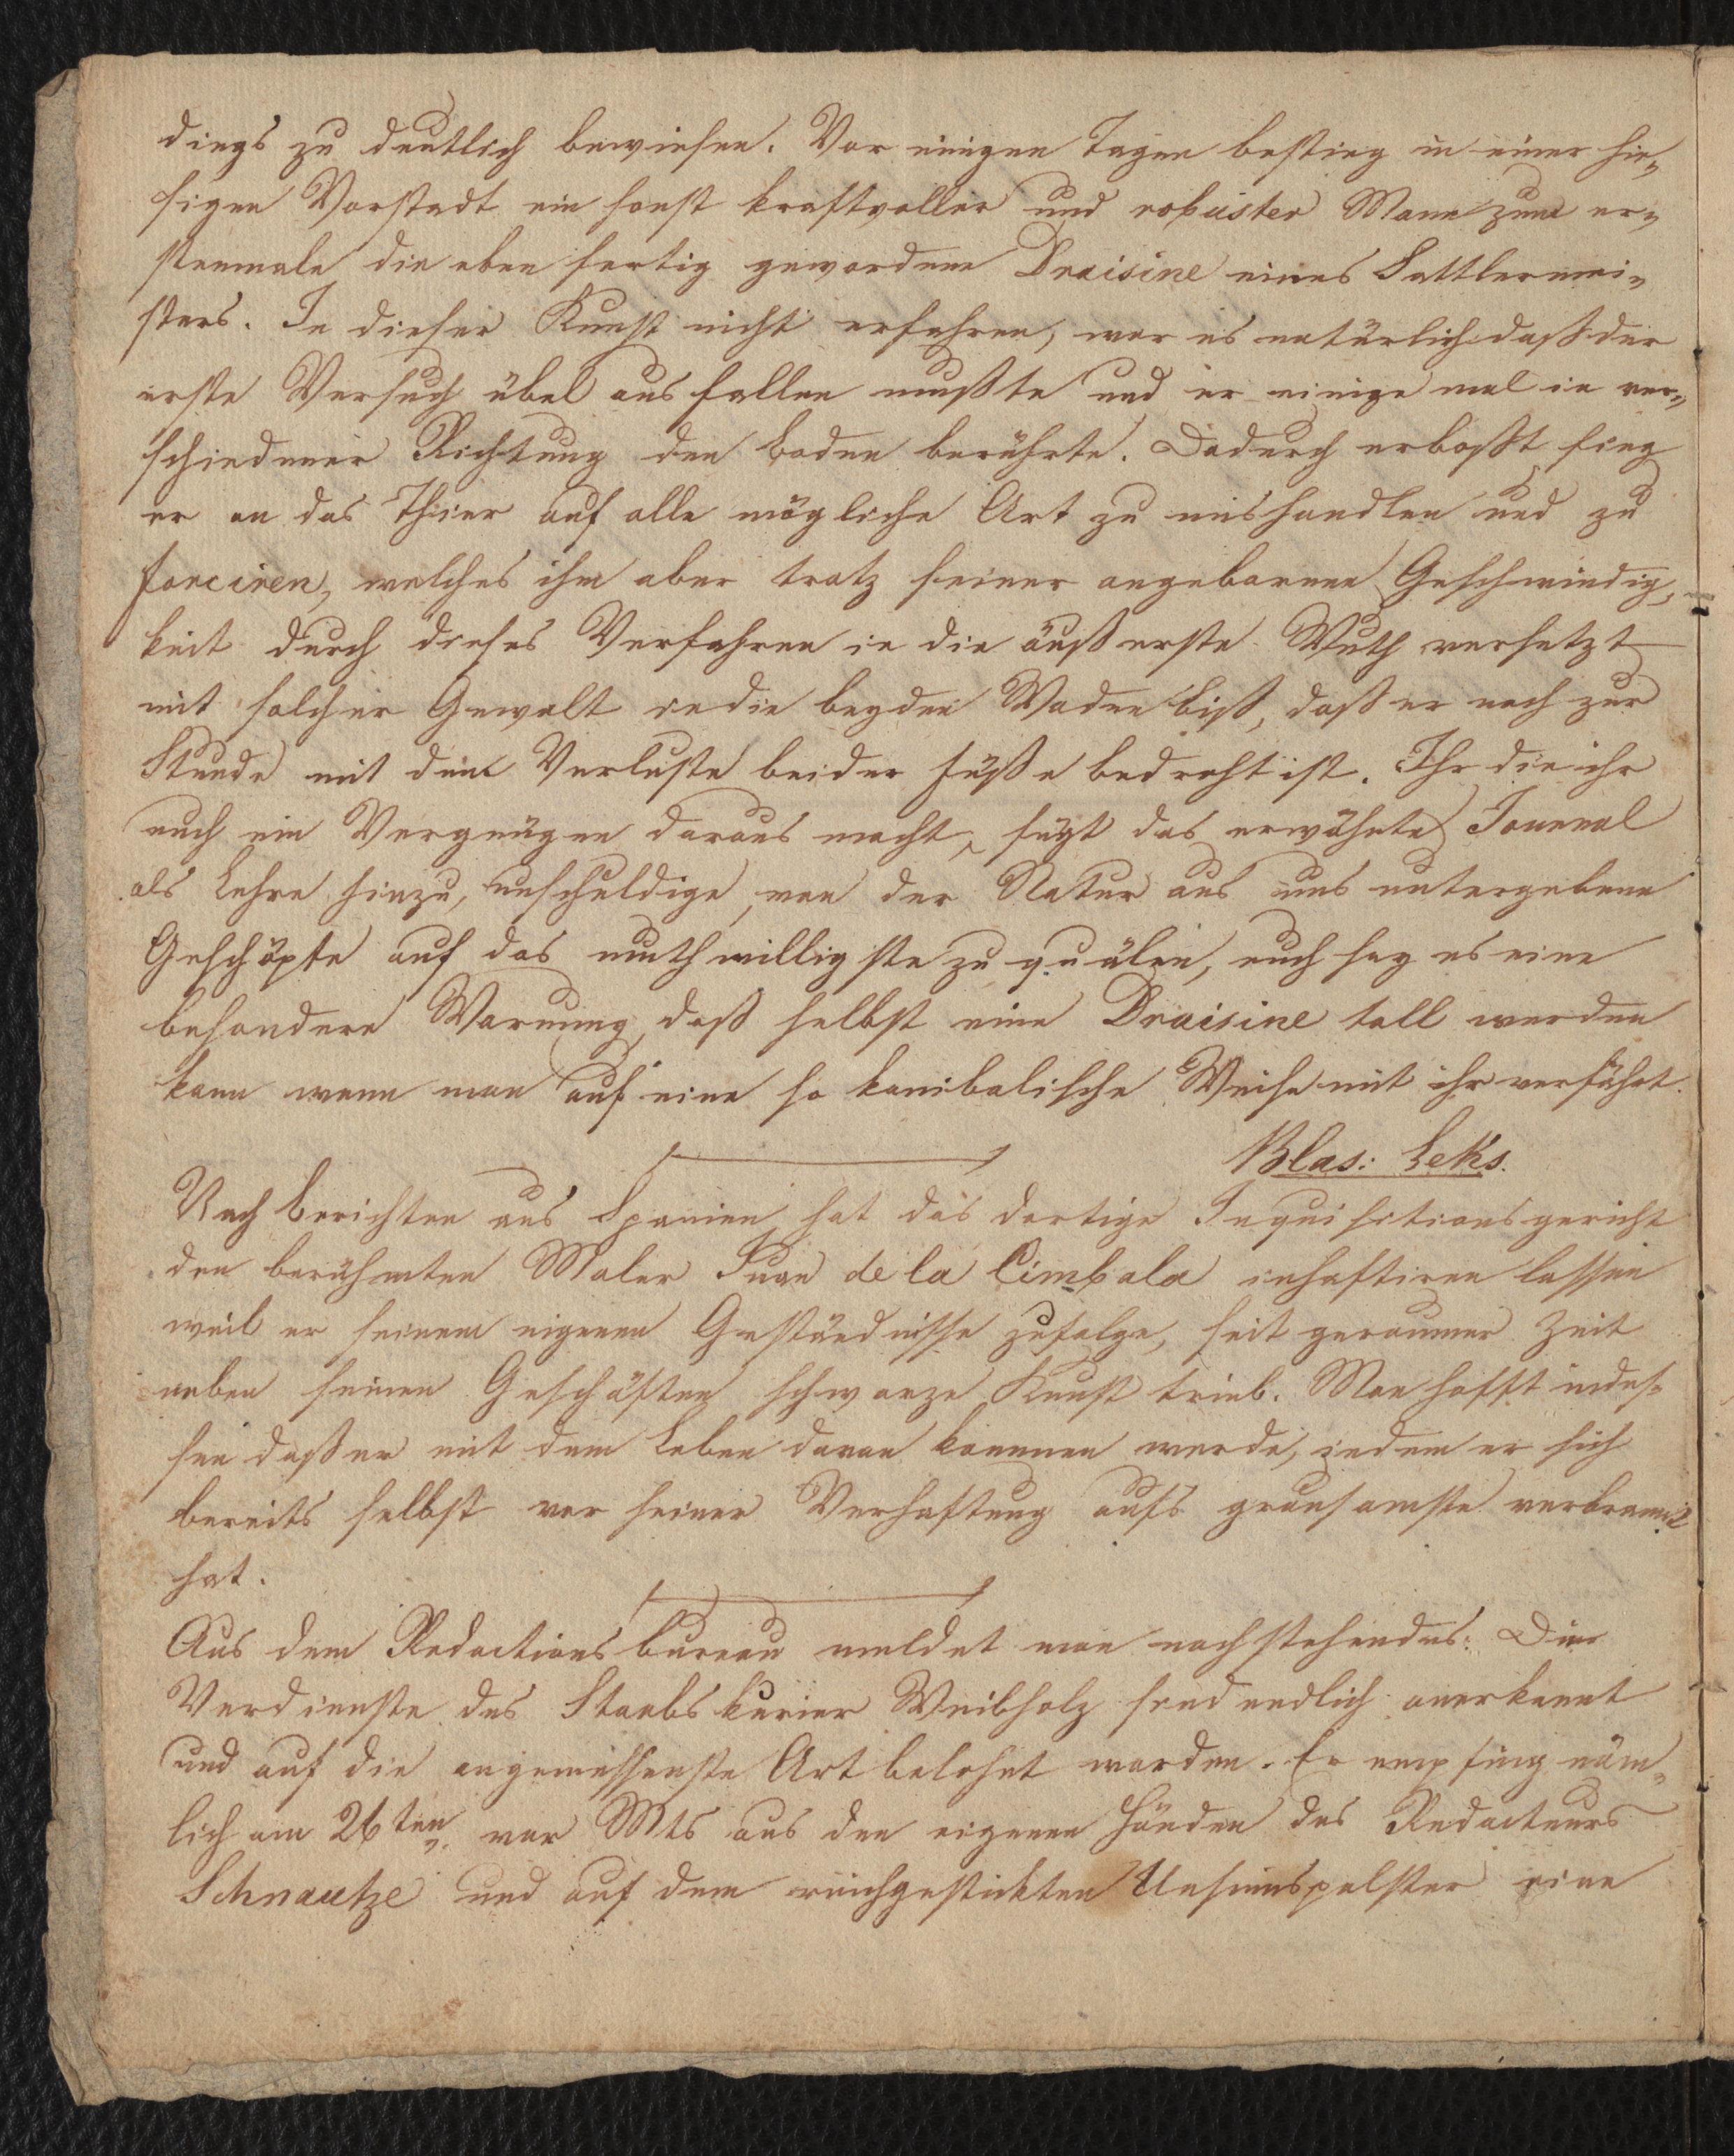 dings zu deutlich bewiesen. Vor einigen Tagen bestieg in einer hie„
sigen Vorstadt ein sonst kraftvoller und robuster Mann zum er„
stenmale die eben fertig gewordene Draisine eines Sattlermei„
sters. In dieser Kunst nicht erfahren, war es natürlich daß der
erste Versuch übel ausfallen mußte und er einige mal in ver„
schiedener Richtung den Boden berührte. Dadurch erboßt fing
er an das Thier auf alle mögliche Art zu mishandlen und zu
forciren, welches ihm aber trotz seiner angebornen Geschwindig„
keit durch dieses Verfahren in die äußerste Wuth versetzt
mit solcher Gewalt in die beyden Waden biß, daß er noch zur
Stunde mit dem Verluste beider Füße bedroht ist. Ihr die ihr
euch ein Vergnügen daraus macht, fügt das erwähnte Journal
als Lehre hinzu, unschuldige, von der Natur aus uns untergebene
Geschöpfe auf das muthwilligste zu quälen, euch sey es eine
besondere Warnung, daß selbst eine Draisine toll werden
kann wenn man auf eine so kanibalische Weise mit ihr verfährt.
Blas: Leks.
Nach Berichten aus Spanien hat das dortige Inquisitionsgericht
den berühmten Maler Juan de la Cimbala inhaftiren lassen
weil er seinem eigenen Geständnisse zufolge, seit geraumer Zeit
neben seinen Geschäften schwarze Kunst trieb. Man hofft indes„
sen daß er mit dem Leben davon kommen werde, indem er sich
bereits selbst vor seiner Verhaftung aufs grausamste verbrannt
hat.
Aus dem Redactionsbureau meldet man nachstehendes: Die
Verdienste des Staabskurier Weibholz sind endlich anerkannt
und auf die angemessenste Art belohnt worden. Er empfing näm„
lich am 26ten vor Mts aus den eigenen Händen des Redacteurs
Schnautze und auf dem reichgestickten Unsinnspolster eine